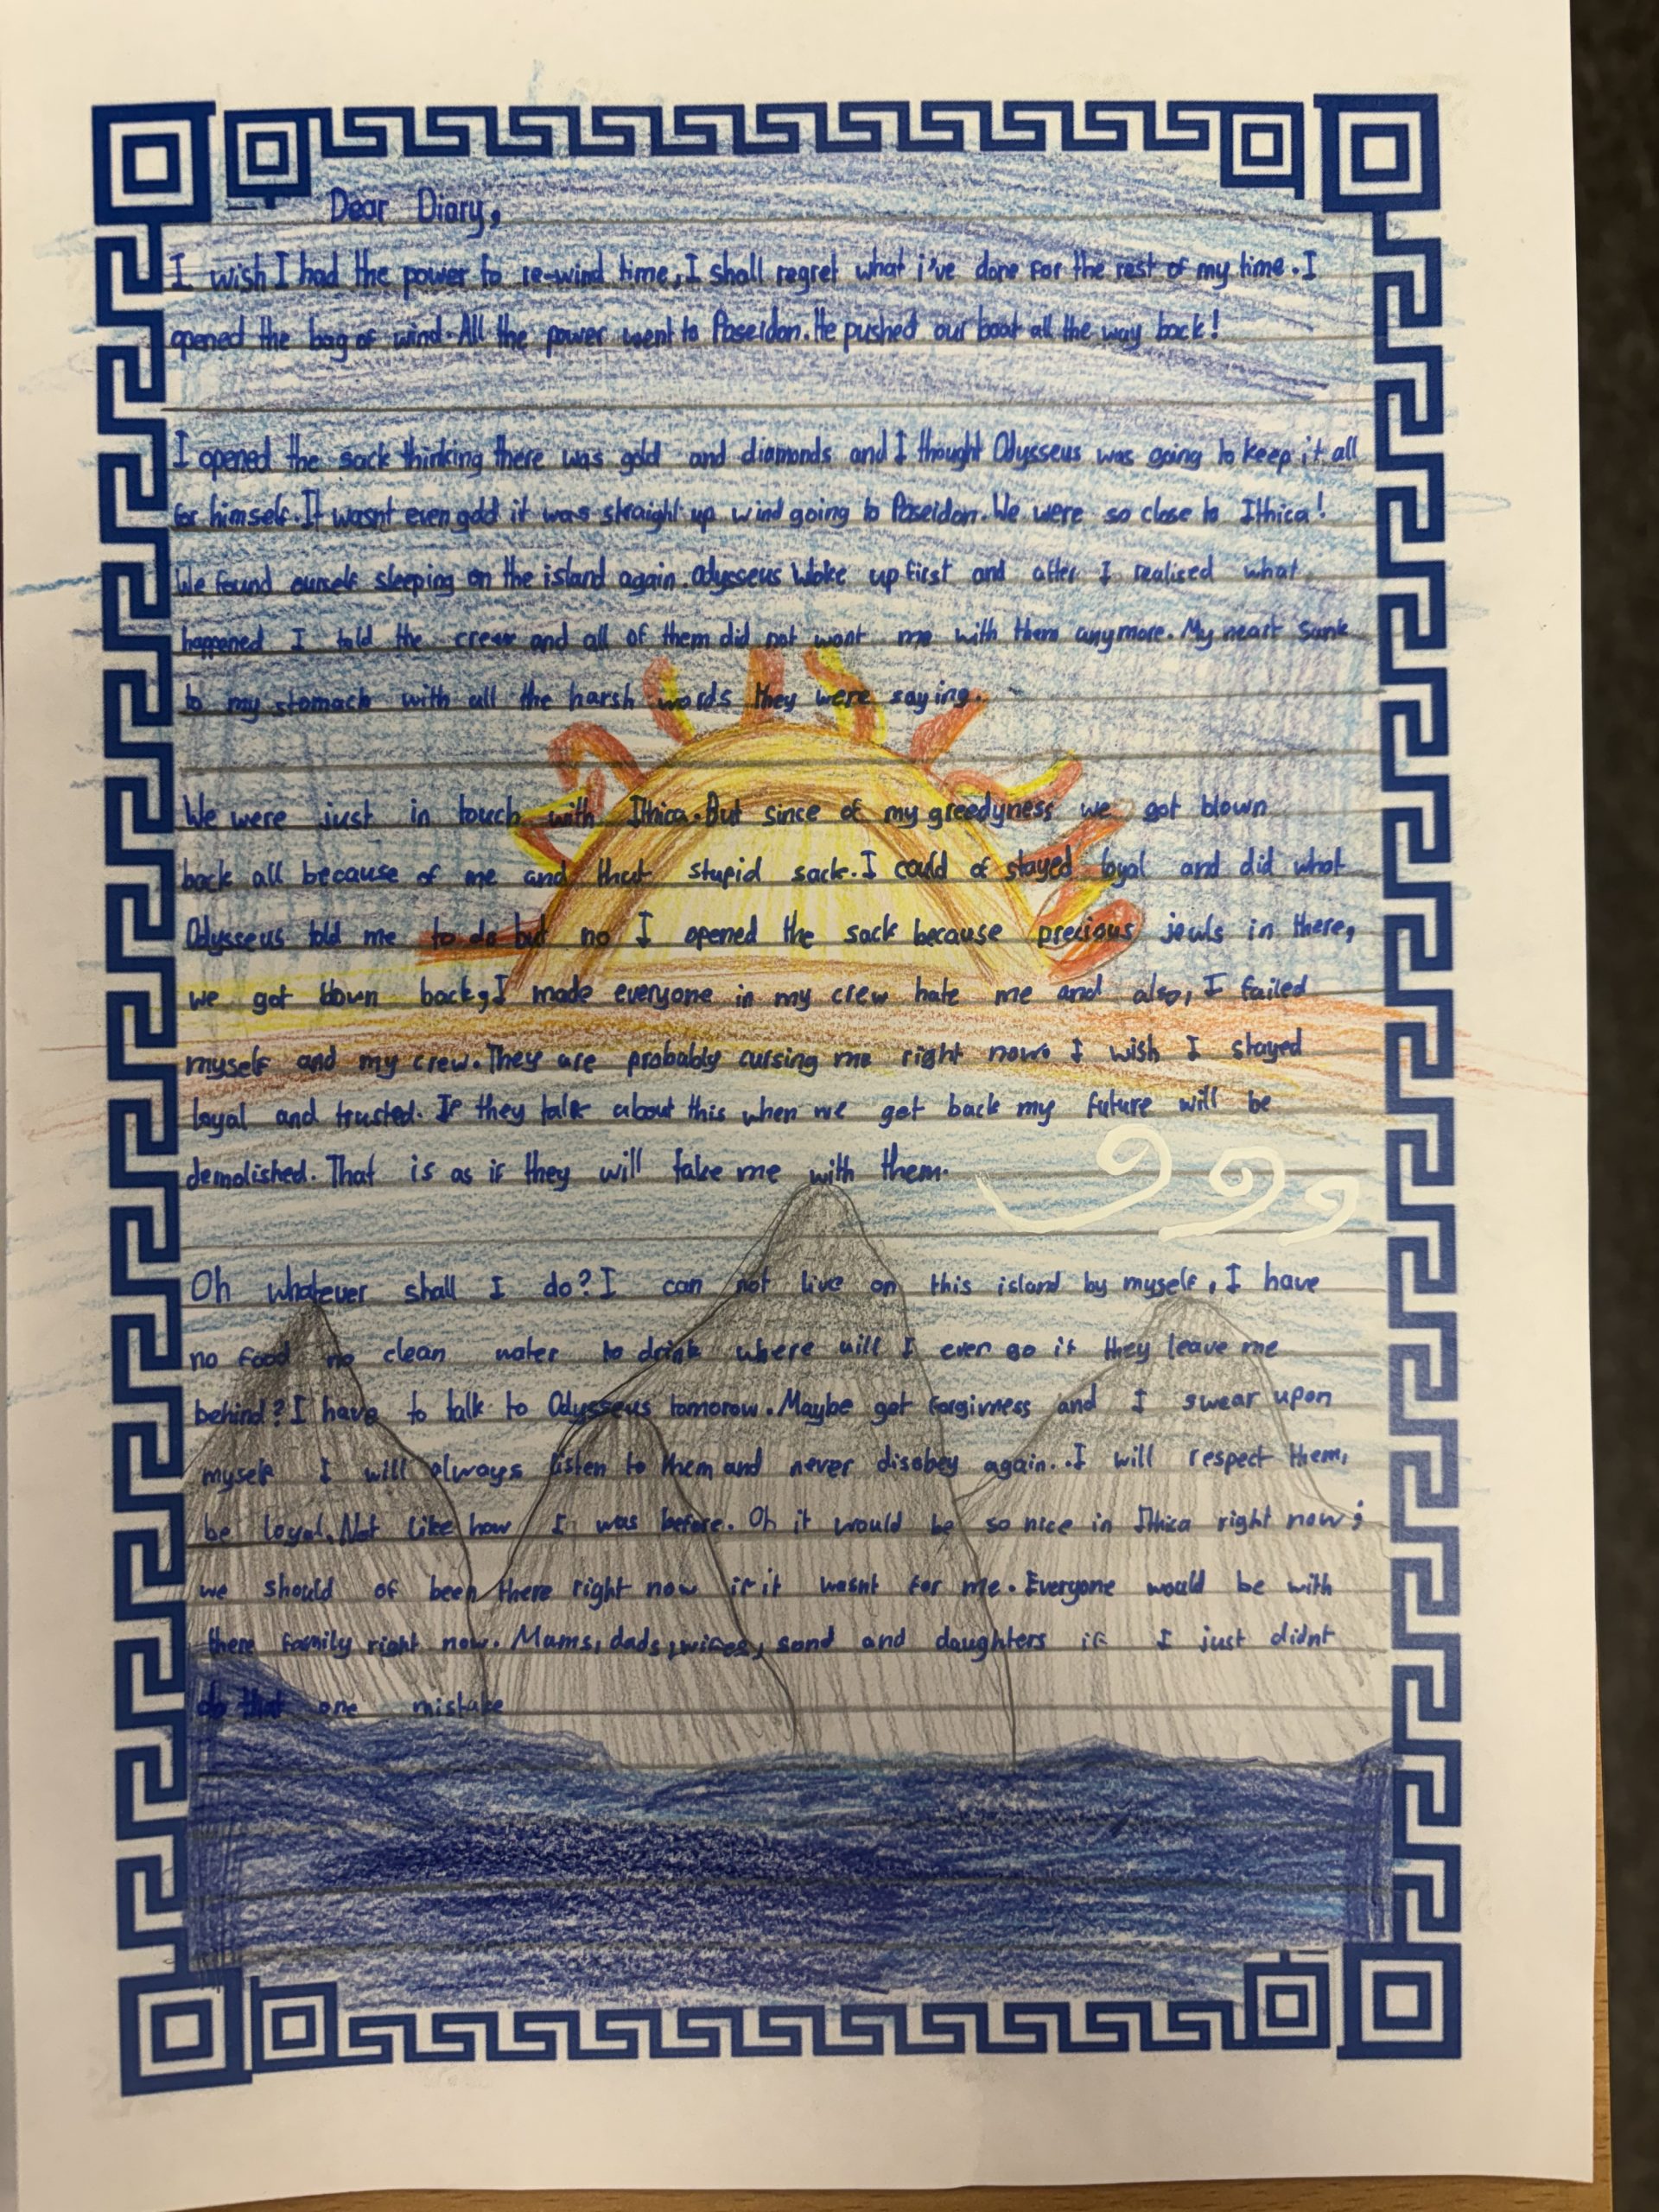 Dear Diary,
I wish I had the power to re-wind time, I shall regret what i've done for the rest of my time. I
opened the bag of wind. All the power went to Poseidon. He pushed our boat all the way back!
I opened the sack thinking there was gold and diamonds and I thought Odysseus was going to keep it all
for himself. It wasnt even gold it was straight up wind going to Poseidon. We were so close to Ithica!
We found ourself sleeping on the island again. Odysseus Woke up first and after I realised what
happened I told the crew and all of them did not want me with them anymore. My heart sunk
to my stomach with all the harsh words they were saying.
We were just in touch with Ithica. But since of my greedyness we got blown
back all because of me and that stupid sack. I could of stayed loyal and did what
Odysseus told me to do but no I opened the sack because precious jewls in there,
we got blown back, I made everyone in my crew hate me and also, I failed
myself and my crew. They are probably cursing me right now. I wish I stayed
loyal and trusted. If they talk about this when we get back my future will be
demolished. That is as if they will take me with them.
Oh whatever shall I do? I can not live on this island by myself, I have
no food no clean water to drink where will I ever go if they leave me
behind? I have to talk to Odysseus tomorow. Maybe get forgivness and I swear upon
myself I will always listen to them and never disobey again. I will respect them,
be loyal. Not like how I was before. Oh it would be so nice in Ithica right now;
we should of been there right now if it wasnt for me. Everyone would be with
there family right now. Mums, dads, wifes, sond and daughters if I just didnt
do that one mistake